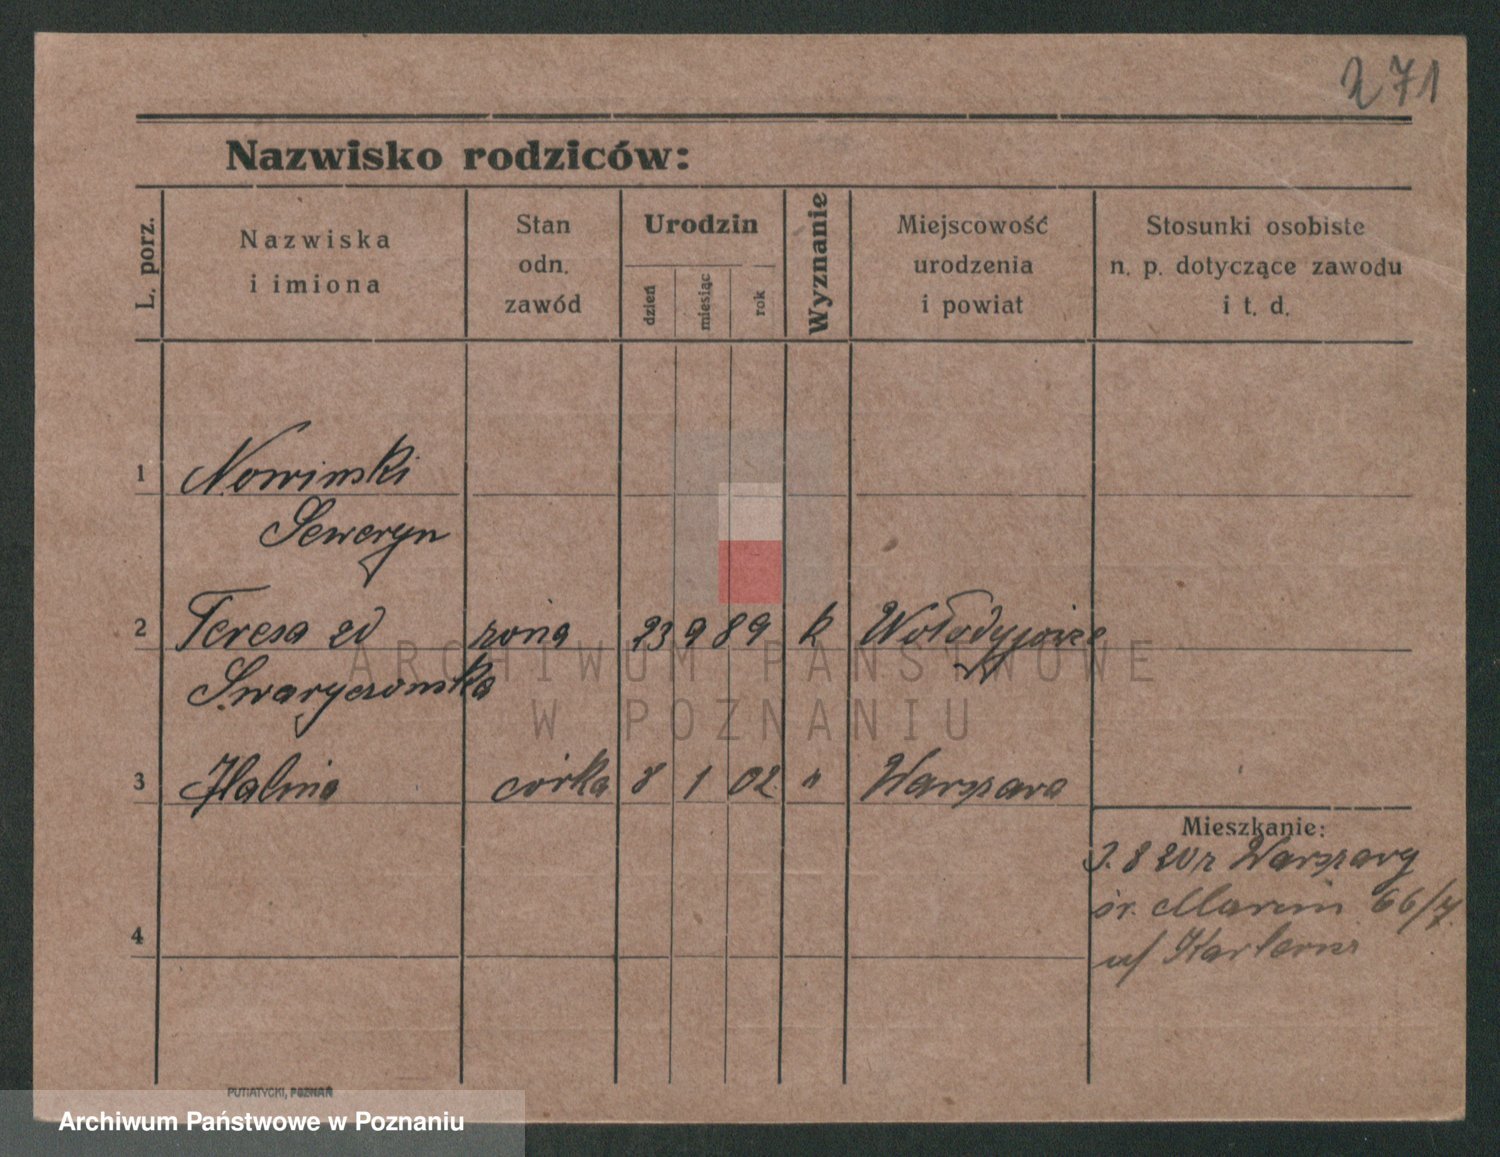 271
Nazwisko rodziców:
L. porz.
Nazwiska
i imiona
Stan
odn.
zawód
Urodzin
dzień
miesiąc
rok
Wyznanie
Miejscowość
urodzenia
i powiat
Stosunki osobiste
n. p. dotyczące zawodu
i t. d.
1 Nowinski
Seweryn
2 Teresa zd żona 23 9 89 k
3 Halina córka 8 1 02 " Warszawa
Mieszkanie:
3. 8 20 z Warszawy
św. Marcin 66/7.
4
PUTIATYCKI, POZNAŃ
ARCHIWUM PAŃSTWOWE
W POZNANIU
Archiwum Państwowe w Poznaniu